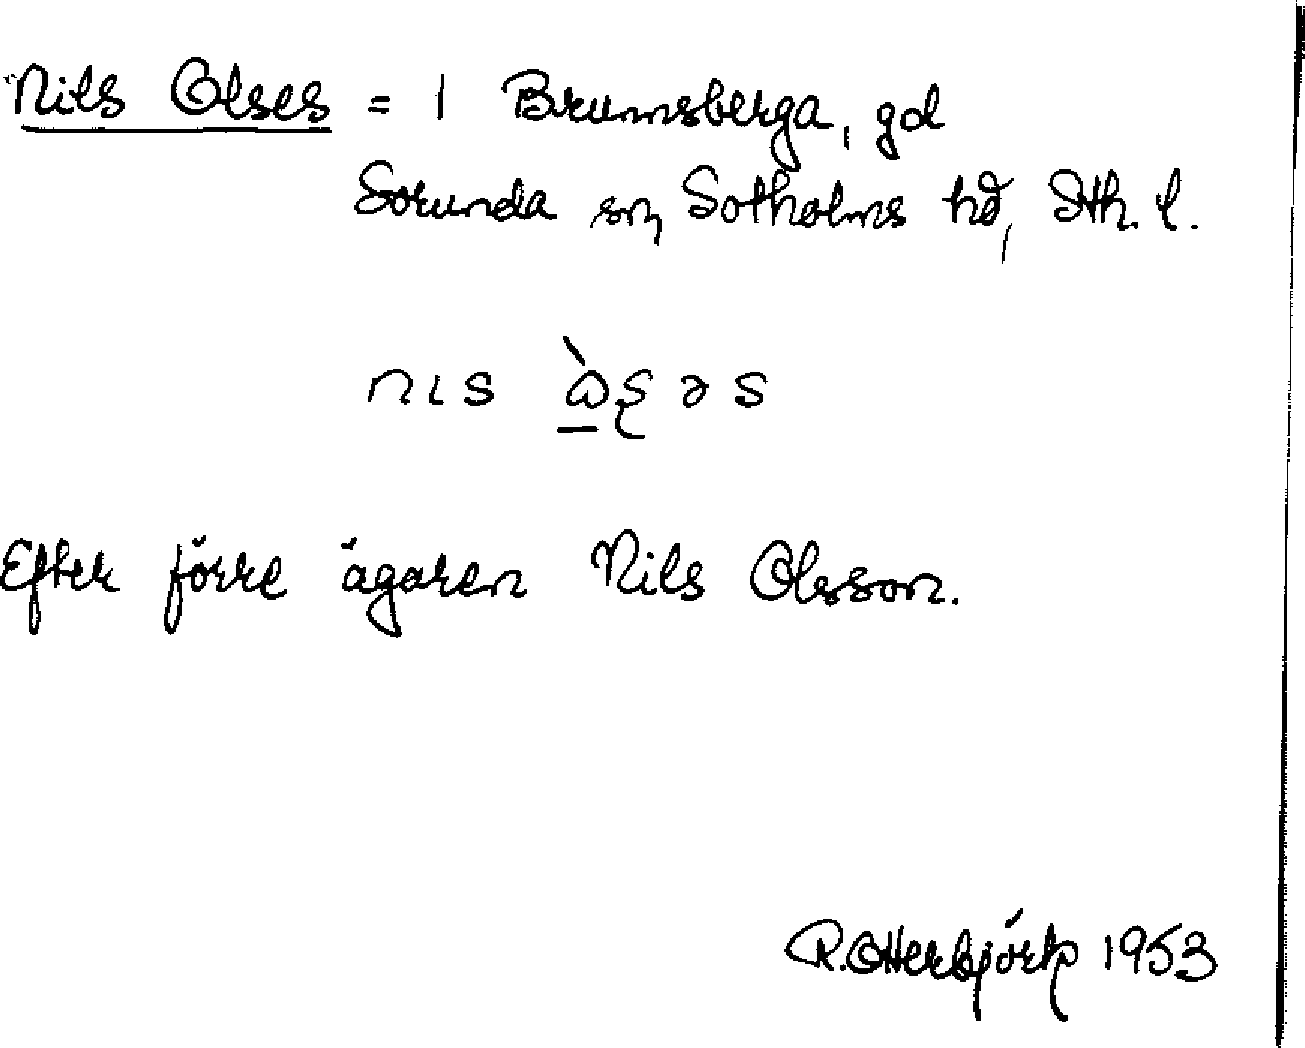 Nils Olses = 1 Brumsberga, gd
Sorunda sn, Sotholms hd, Sth. l.
Efter förre ägaren Nils Olsson.
R. Otterbjörk 1953